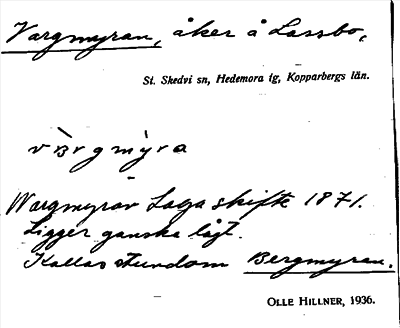 Vargmyran, åker å Lassbo,
St. Skedvi sn, Hedemora tg, Kopparbergs län.
Wargmyror Laga skifte 1871.
Ligger ganska lågt.
Kallas stundom Bergmyran.
OLLE HILLNER, 1936.